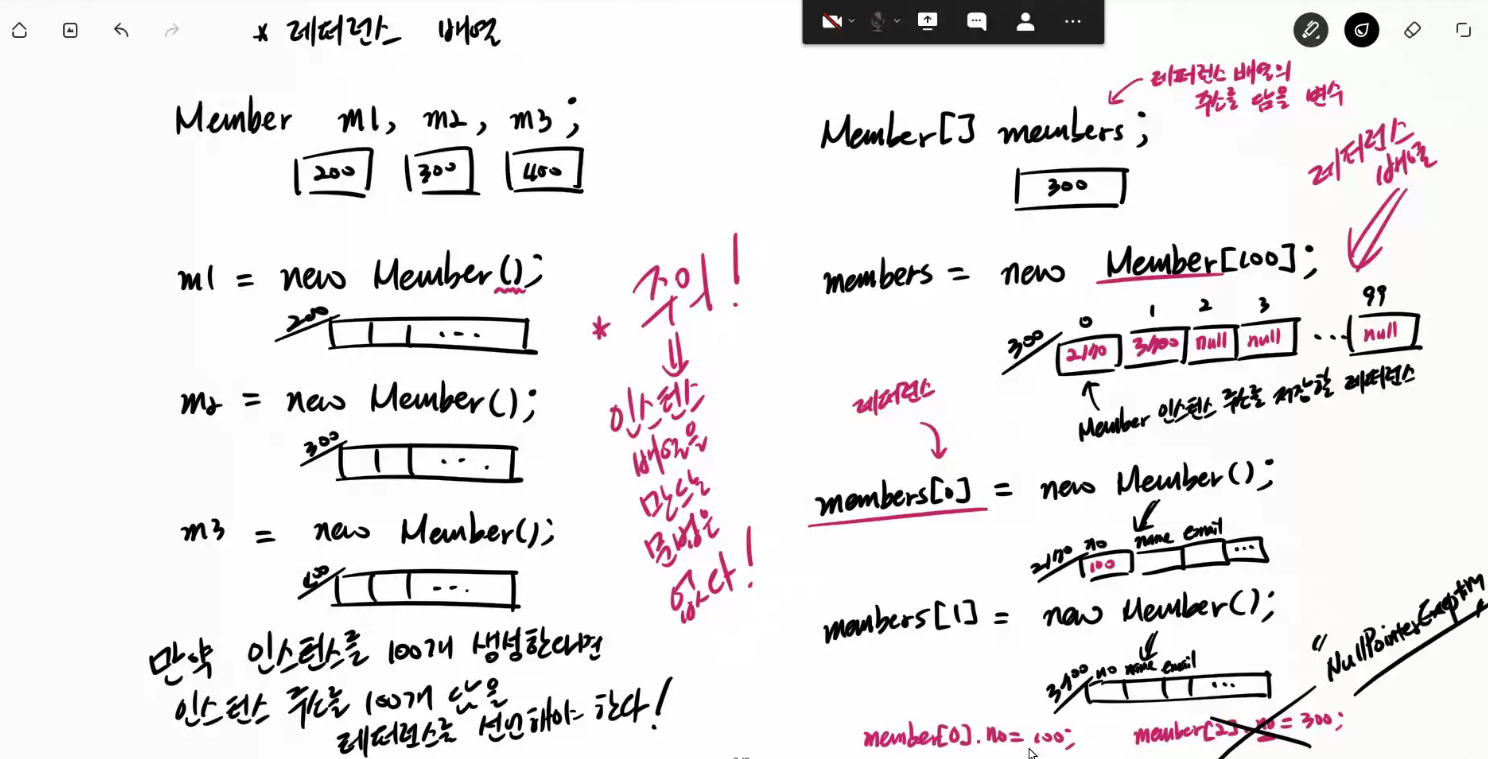 * 레퍼런스 배열
Member m1, m2, m3;
200 300 400
m1 = new Member();
200
...
m2 = new Member();
300
...
m3 = new Member();
400
...
만약 인스턴스를 100개 생성한다면
인스턴스 주소를 100개 담을
레퍼런스를 선언해야 한다!
* 주의!
인스턴스
배열을
만드는
문법은
없다!
레퍼런스 배열의
주소를 담을 변수
Member[] members;
300
레퍼런스
배열
members = new Member[100];
0 1 2 3 99
300
null null ... null
Member 인스턴스 주소를 저장할 레퍼런스
레퍼런스
members[0] = new Member();
no name email
100 ...
members[1] = new Member();
no name email
...
"NullPointerException
member[0].no = 100;
member[2].no = 300;